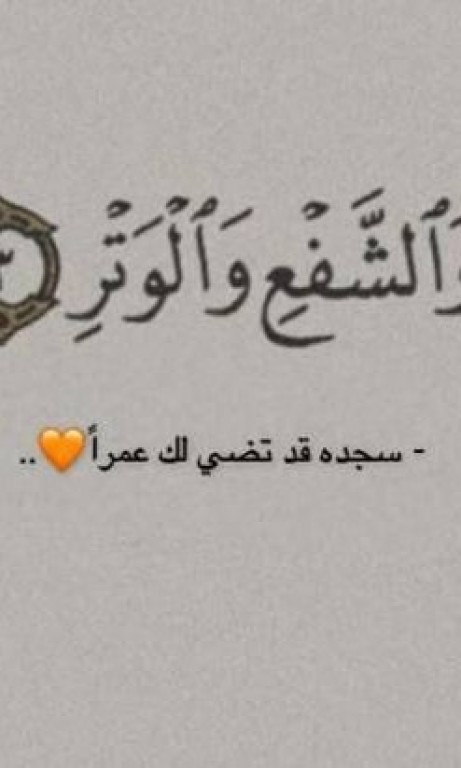 وَٱلشَّفۡعِ وَٱلۡوَتۡرِ ٣
- سجده قد تضي لك عمراً🧡..